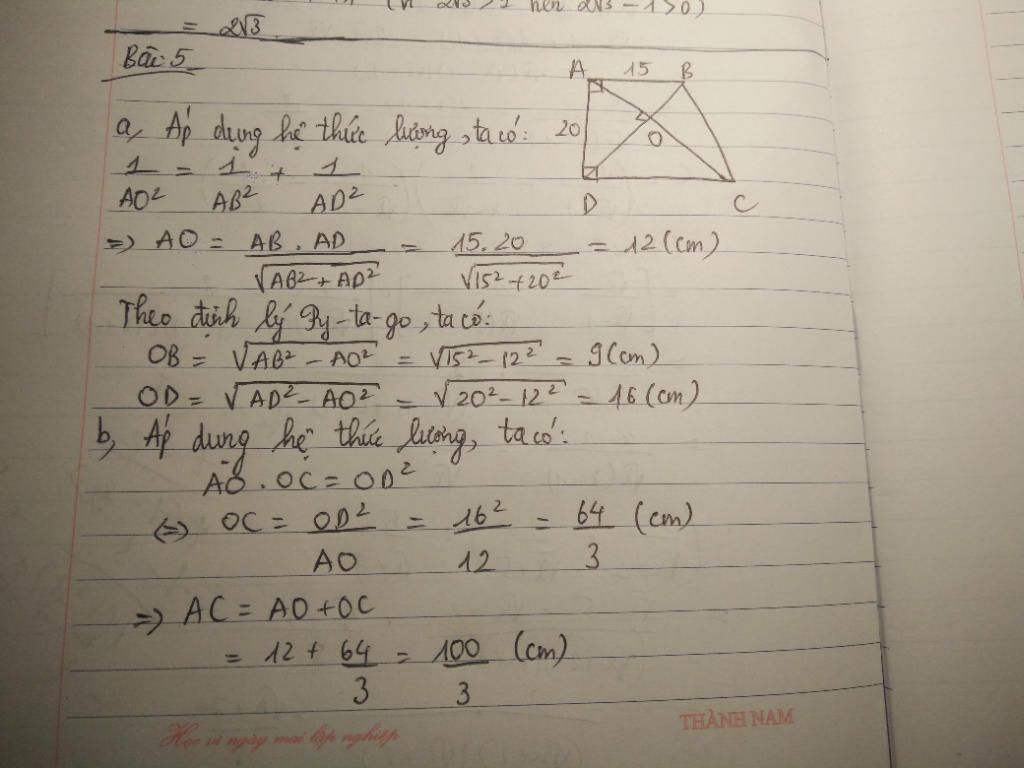 (vì 2√3 > 1 nên 2√3 - 1 > 0)
= 2√3
Bài 5
A 15 B
20 O
D C
a, Áp dụng hệ thức lượng, ta có:
1/AO² = 1/AB² + 1/AD²
=> AO = AB . AD/√AB² + AD² = 15.20/√15² + 20² = 12 (cm)
Theo định lý Py-ta-go, ta có:
OB = √AB² - AO² = √15² - 12² = 9 (cm)
OD = √AD² - AO² = √20² - 12² = 16 (cm)
b, Áp dung hệ thức lượng, ta có:
AO . OC = OD²
<=> OC = OD²/AO = 16²/12 = 64/3 (cm)
=> AC = AO + OC
= 12 + 64/3 = 100/3 (cm)
Học vì ngày mai lập nghiệp
THÀNH NAM